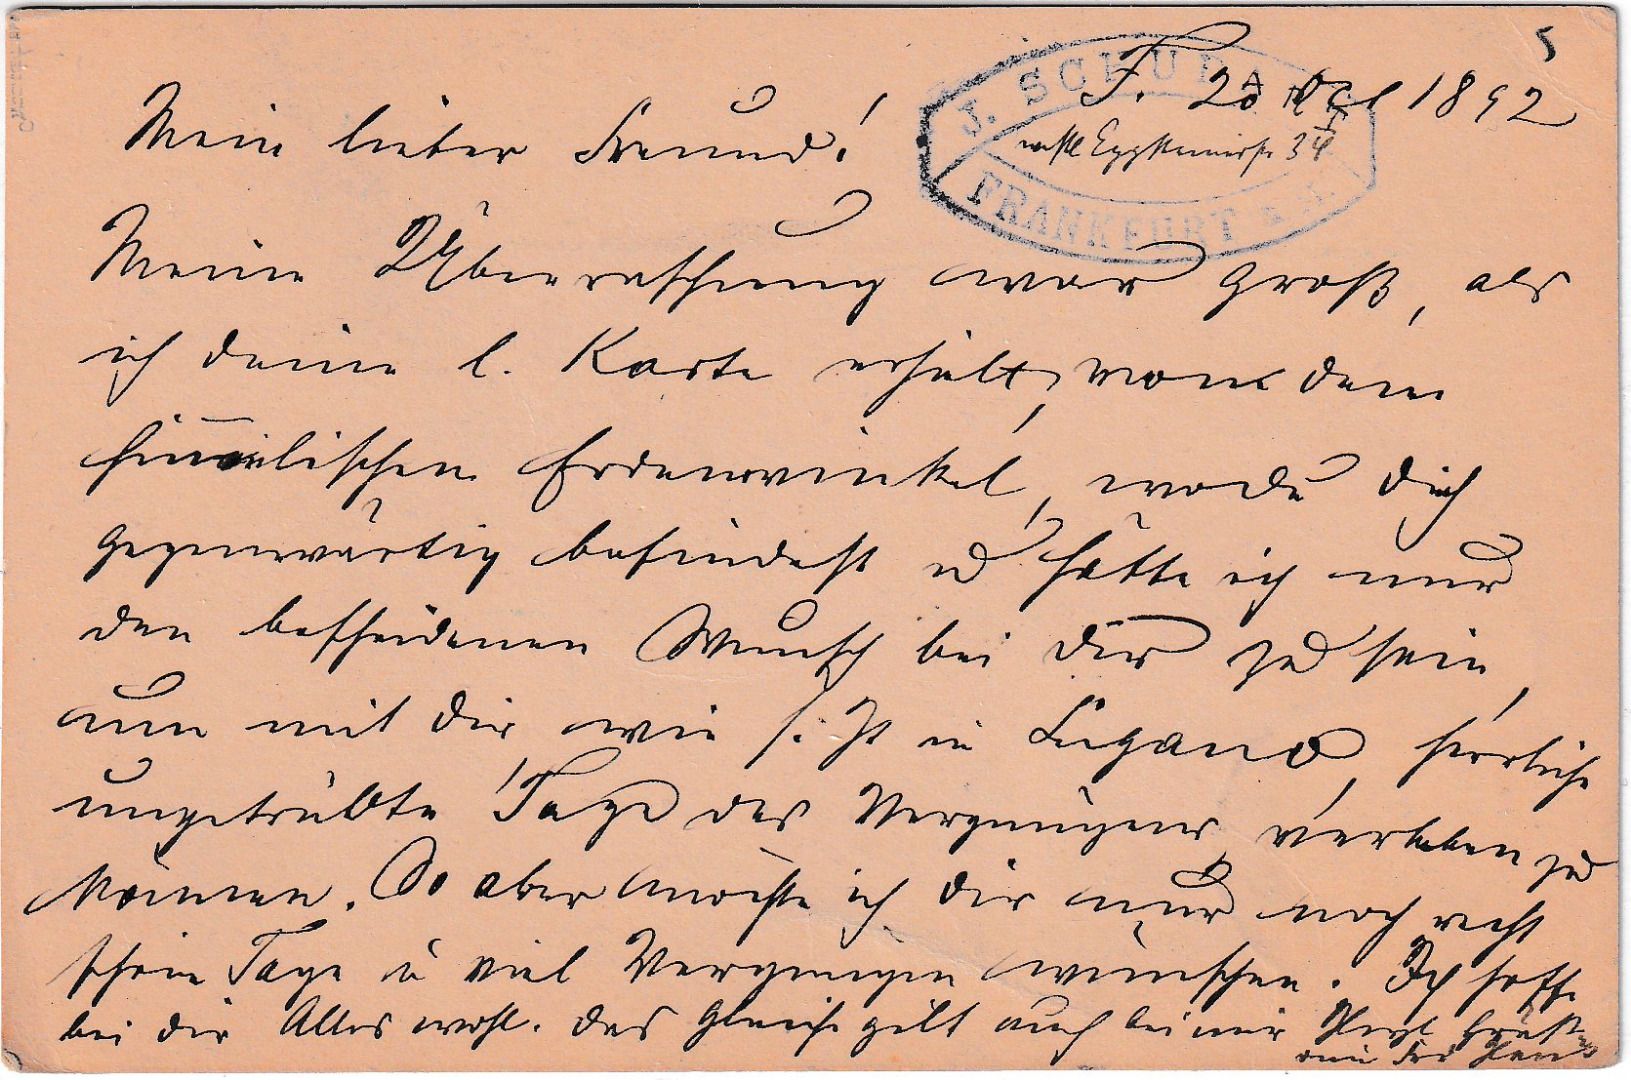 5
F. 20 1892
J. SCHU
Mein lieber Freund!
34
FRANKFURT A M.
Meine Überraschung war groß, als
ich deine l. Karte erhielt, von dem
himmlischen Erdenwinkel, wo du dich
gegenwärtig befindest u hätte ich nur
den bescheidenen Wunsch bei dir zu sein,
um mit dir, wie s. Zt in Lugano, herrliche
ungetrübte Tage des Vergnügens verleben zu
können. So aber möchte ich dir nur noch recht
schöne Tage u viel Vergnügen wünschen. Ich hoffe
bei dir Alles wohl. das Gleiche gilt auch bei mir Herzl Grüße